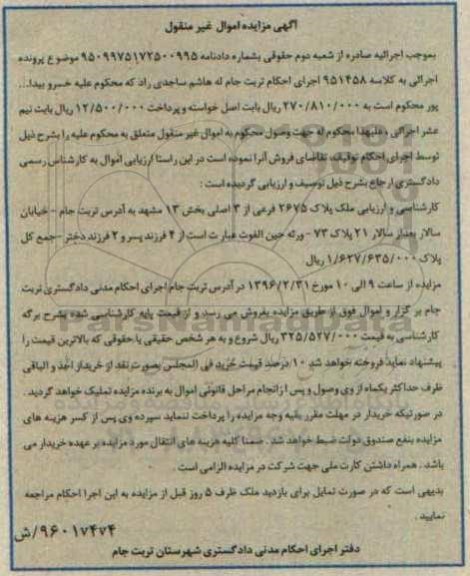 آگهی مزایده اموال غیر منقول
بموجب اجرائیه صادره از شعبه دوم حقوقی بشماره دادنامه ۹۵۰۹۹۷۵۱۷۲۵۰۰۹۹۵ موضوع پرونده
اجرائی به کلاسه ۹۵۱۴۵۸ اجرای احکام تربت جام له هاشم ساجدی راد که محکوم علیه خسرو بیدا...
پور محکوم است به ۲۷۰/۸۱۰/۰۰۰ ریال بابت اصل خواسته و پرداخت ۱۲/۵۰۰/۰۰۰ ریال بابت نیم
عشر اجرائی، علیهذا محکوم له جهت وصول محکوم به اموال غیر منقول متعلق به محکوم علیه را بشرح ذیل
توسط اجرای احکام توقیف، تقاضای فروش آنرا نموده است در این راستا ارزیابی اموال به کارشناس رسمی
دادگستری ارجاع بشرح ذیل توصیف و ارزیابی گردیده است :
کارشناسی و ارزیابی ملک پلاک ۲۶۷۵ فرعی از ۳ اصلی بخش ۱۳ مشهد به آدرس تربت جام - خیابان
سالار بعداز سالار ۲۱ پلاک ۷۳ - ورثه حین الفوت عبارت است از ۴ فرزند پسر و ۲ فرزند دختر - جمع کل
پلاک ۱/۶۲۷/۶۳۵/۰۰۰ ریال
مزایده از ساعت ۹ الی ۱۰ مورخ ۱۳۹۶/۲/۳۱ در آدرس تربت جام اجرای احکام مدنی دادگستری تربت
جام بر گزار و اموال فوق از طریق مزایده بفروش می رسد و از قیمت پایه کارشناسی شده بشرح برگه
کارشناسی به قیمت ۳۲۵/۵۲۷/۰۰۰ ریال شروع و به هر شخص حقیقی یا حقوقی که بالاترین قیمت را
پیشنهاد نماید فروخته خواهد شد ۱۰ درصد قیمت خرید فی المجلس بصورت نقد از خریدار اخذ و الباقی
ظرف حداکثر یکماه از وی وصول و پس از انجام مراحل قانونی اموال به برنده مزایده تملیک خواهد گردید .
در صورتیکه خریدار در مهلت مقرر بقیه وجه مزایده را پرداخت ننماید سپرده وی پس از کسر هزینه های
مزایده بنفع صندوق دولت ضبط خواهد شد . ضمنا کلیه هزینه های انتقال مورد مزایده بر عهده خریدار می
باشد . همراه داشتن کارت ملی جهت شرکت در مزایده الزامی است .
بدیهی است که در صورت تمایل برای بازدید ملک ظرف ۵ روز قبل از مزایده به این اجرا احکام مراجعه
نمایید .
۹۶۰۱۷۴۷۴/ش
دفتر اجرای احکام مدنی دادگستری شهرستان تربت جام
ParsNamadData